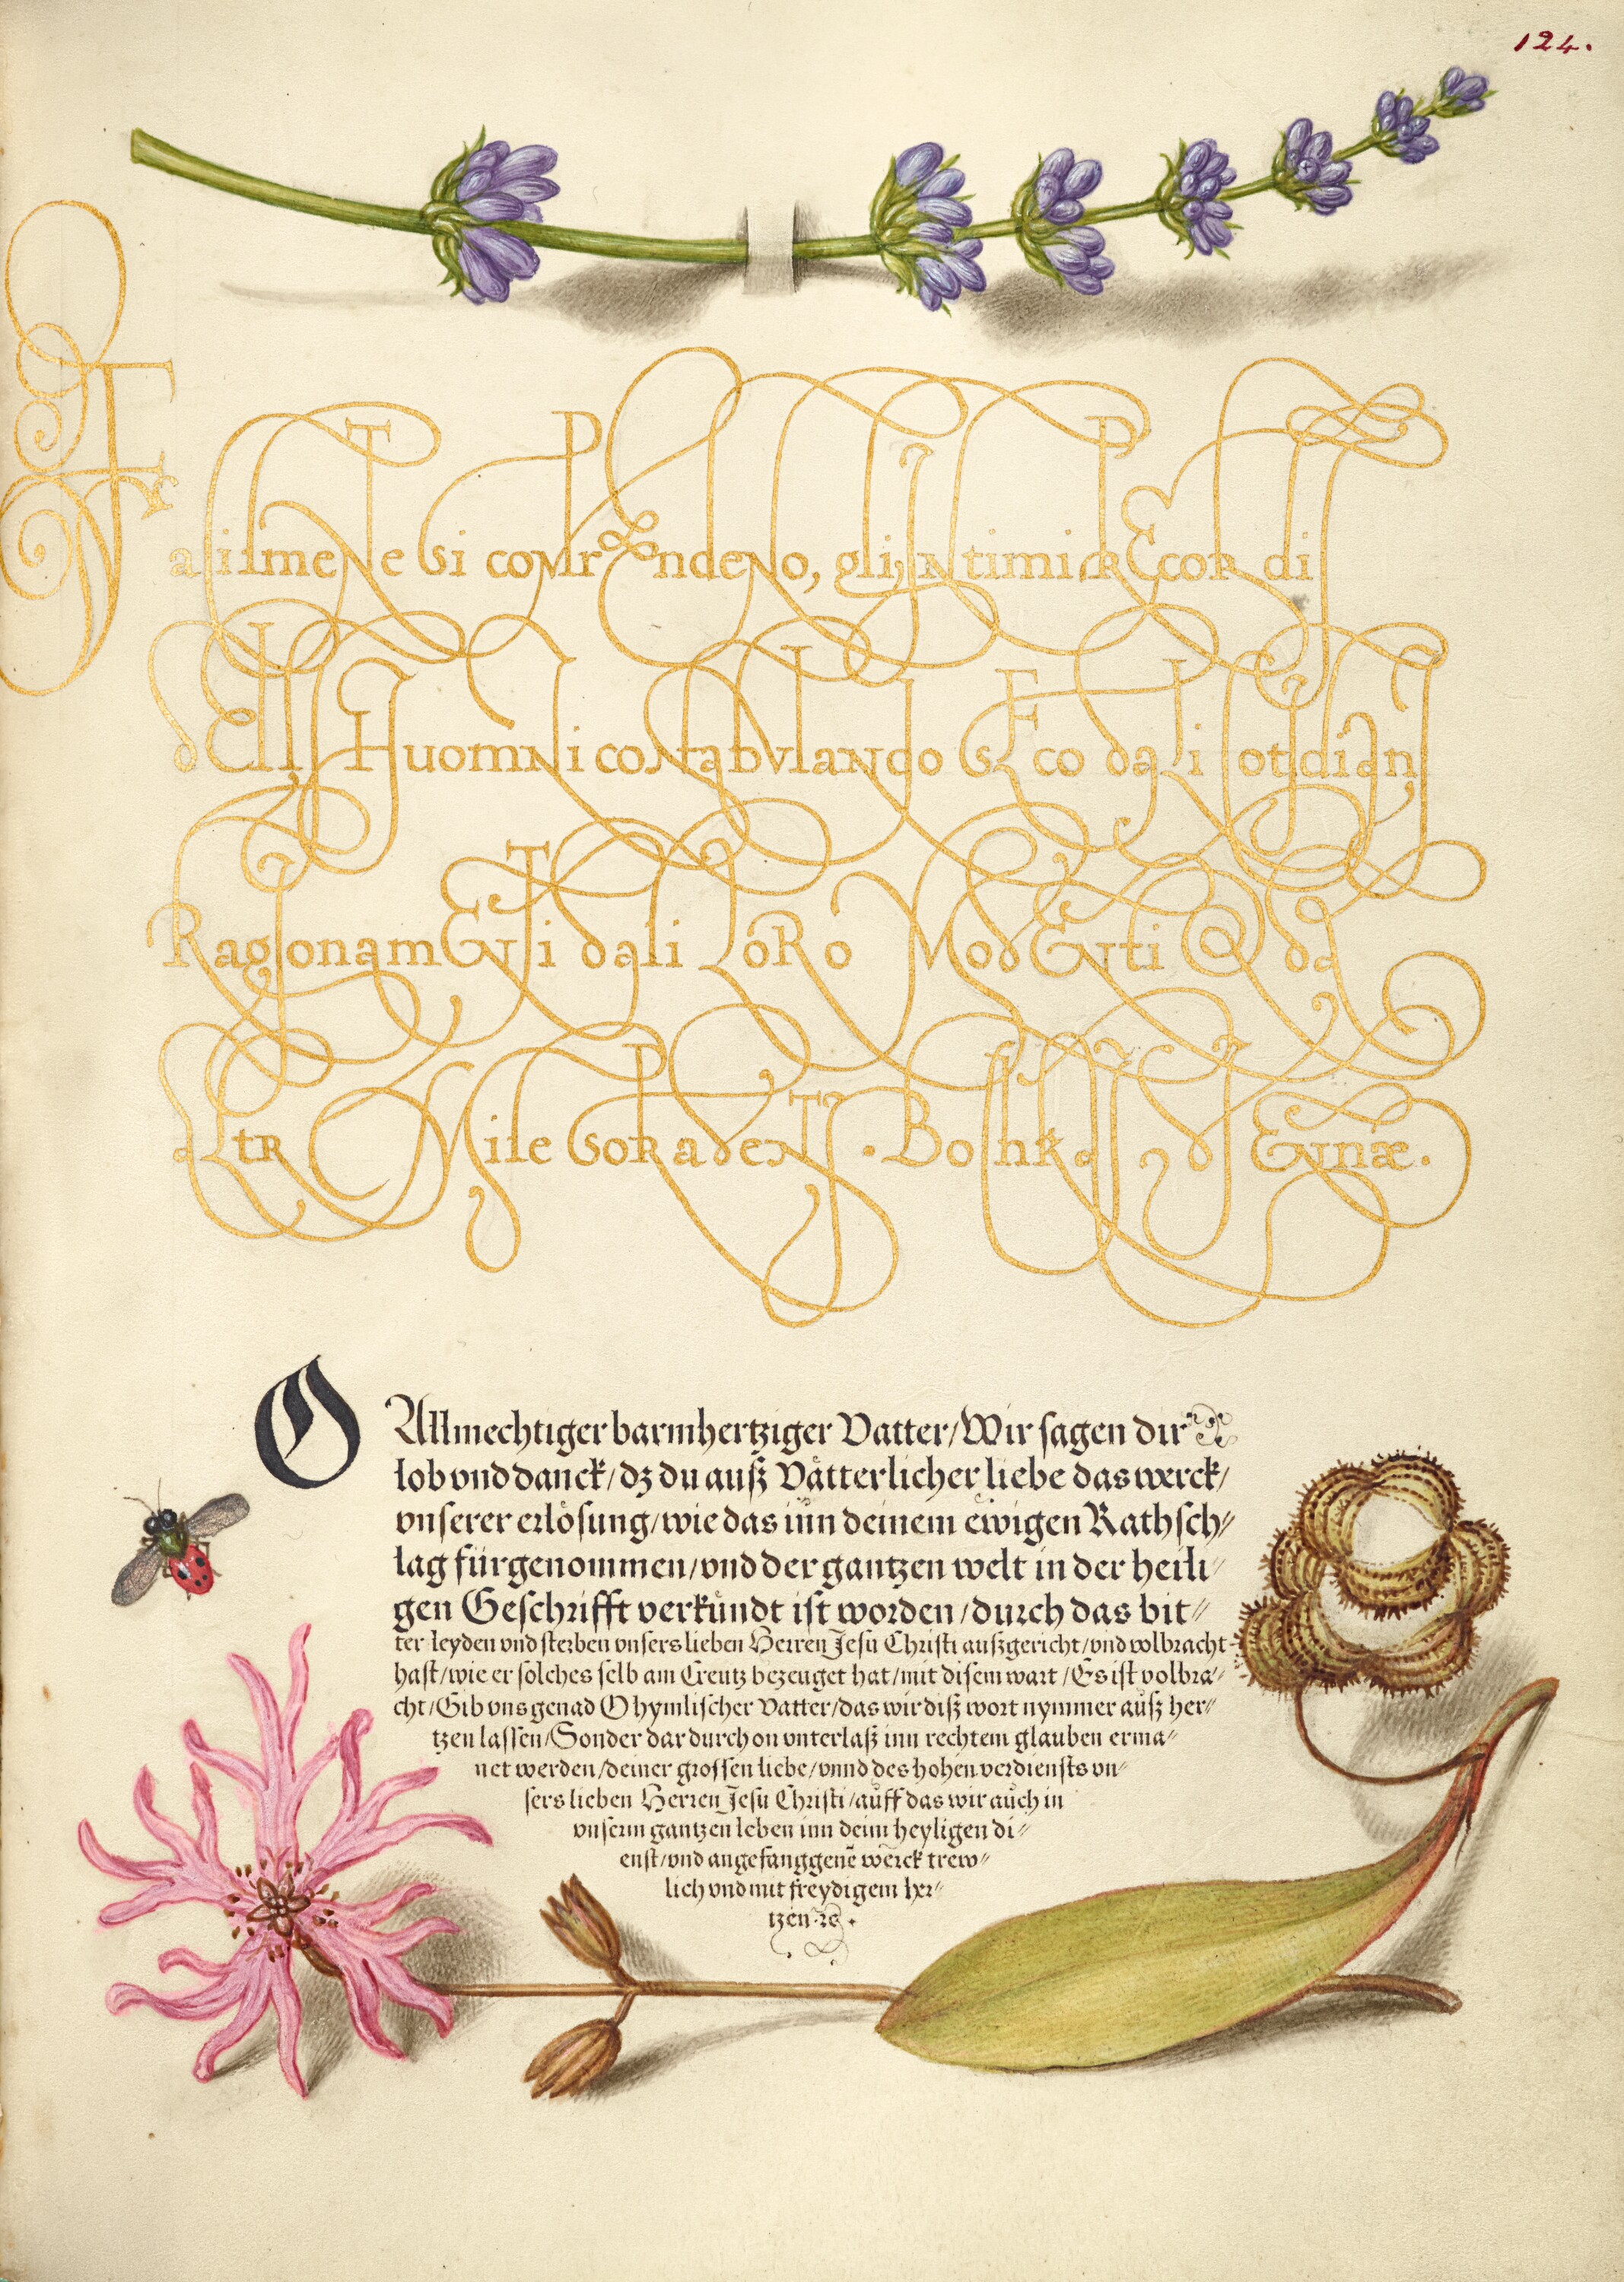 124.
Facilmente si comprendeno, gli intimi Recordi
delli Huomini confabulando seco dali cotidiani
Ragionamenti dali Loro Modesti & da
altr Mile
O Allmechtiger barmhertziger Vatter/Wir sagen dir
lob vnd danck/dz du auß Vätterlicher liebe das werck/
vnserer erlösung/wie das inn deinem ewigen Rathsch⸗
lag fürgenommen/vnd der gantzen welt in der heili⸗
gen Geschrifft verkündt ist worden/durch das bit⸗
ter leyden vnd sterben vnsers lieben Herren Jesu Christi außgericht/vnd volbracht
hast/wie er solches selb am Creutz bezeuget hat/mit disem wart/Es ist volbra⸗
cht/Gib vns genad O hymlischer Vatter/das wir diß wort nymmer auß her⸗
tzen lassen/Sonder dardurch on vnterlaß inn rechtem glauben erma⸗
net werden/deiner grossen liebe/vnnd des hohen verdiensts vn⸗
sers lieben Herren Jesu Christi/auff das wir auch in
vnserm gantzen leben inn deim heyligen di⸗
enst/vnd angefanggenē werck trew⸗
lich vnd mit freydigem her⸗
tzen ꝛc.